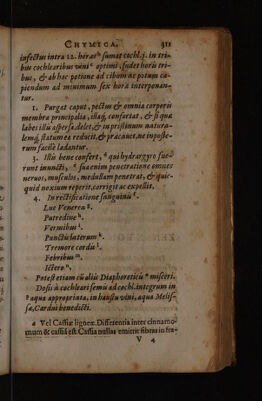 CHYMICA. 311
infectus intra 12. horas sumat cochl. j. in tri-
bus cochlearibus vini optimi, sudet horis tri-
bus, & ab hac potione ad cibum ac potum ca-
piendum ad minimum sex hora interponan-
tur.
1. Purgat caput, pectus & omnia corporis
membra principalia, illaq́; confortat, & si quâ
labes illis aspersa, delet, & in pristinum natura-
lemq́; statum ea reducit, & præcavet, ne in poste-
rum facilè lædantur.
3. Illis bene confert, qui hydrargyro fue-
runt inuncti, sua enim penetratione omnes
nervos, musculos, medullam penetrat, & quic-
quid noxium reperit, corrigit ac expellit.
4. In rectificatione sanguinis i.
Lue Venerea g.
Putredine h.
Vermibus i.
Punctis laterum k.
Tremore cordis l.
Febribus m.
Ictero n.
Potest etiam cū aliis Diaphoreticis misceri.
Dosis à cochleari semis ad cochl. integrum in
aqua appropriata, in haustu vini, aqua Melis-
sæ, Cardui benedicti.
a Vel Cassiæ ligneæ. Differentia inter cinnamo-
mum & cassiā est. Cassia nullas emittit fibras in fra-
V 4